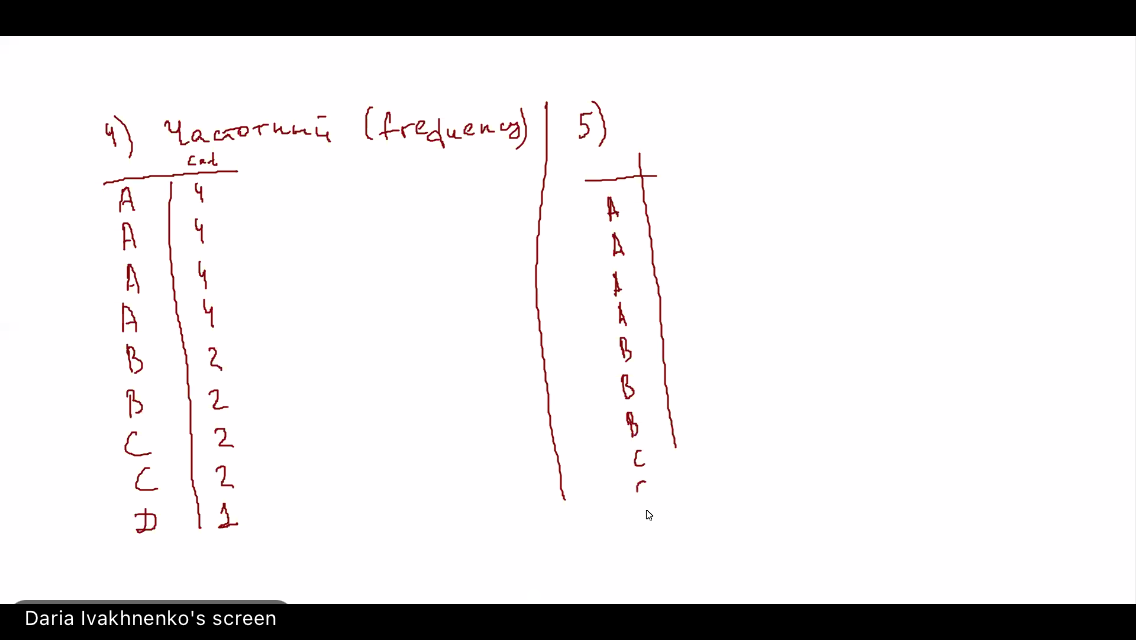 4) Частотный (frequency)
cat
A 4
A 4
A 4
A 4
B 2
B 2
C 2
C 2
D 1
5)
A
A
A
A
B
B
B
C
Daria Ivakhnenko's screen